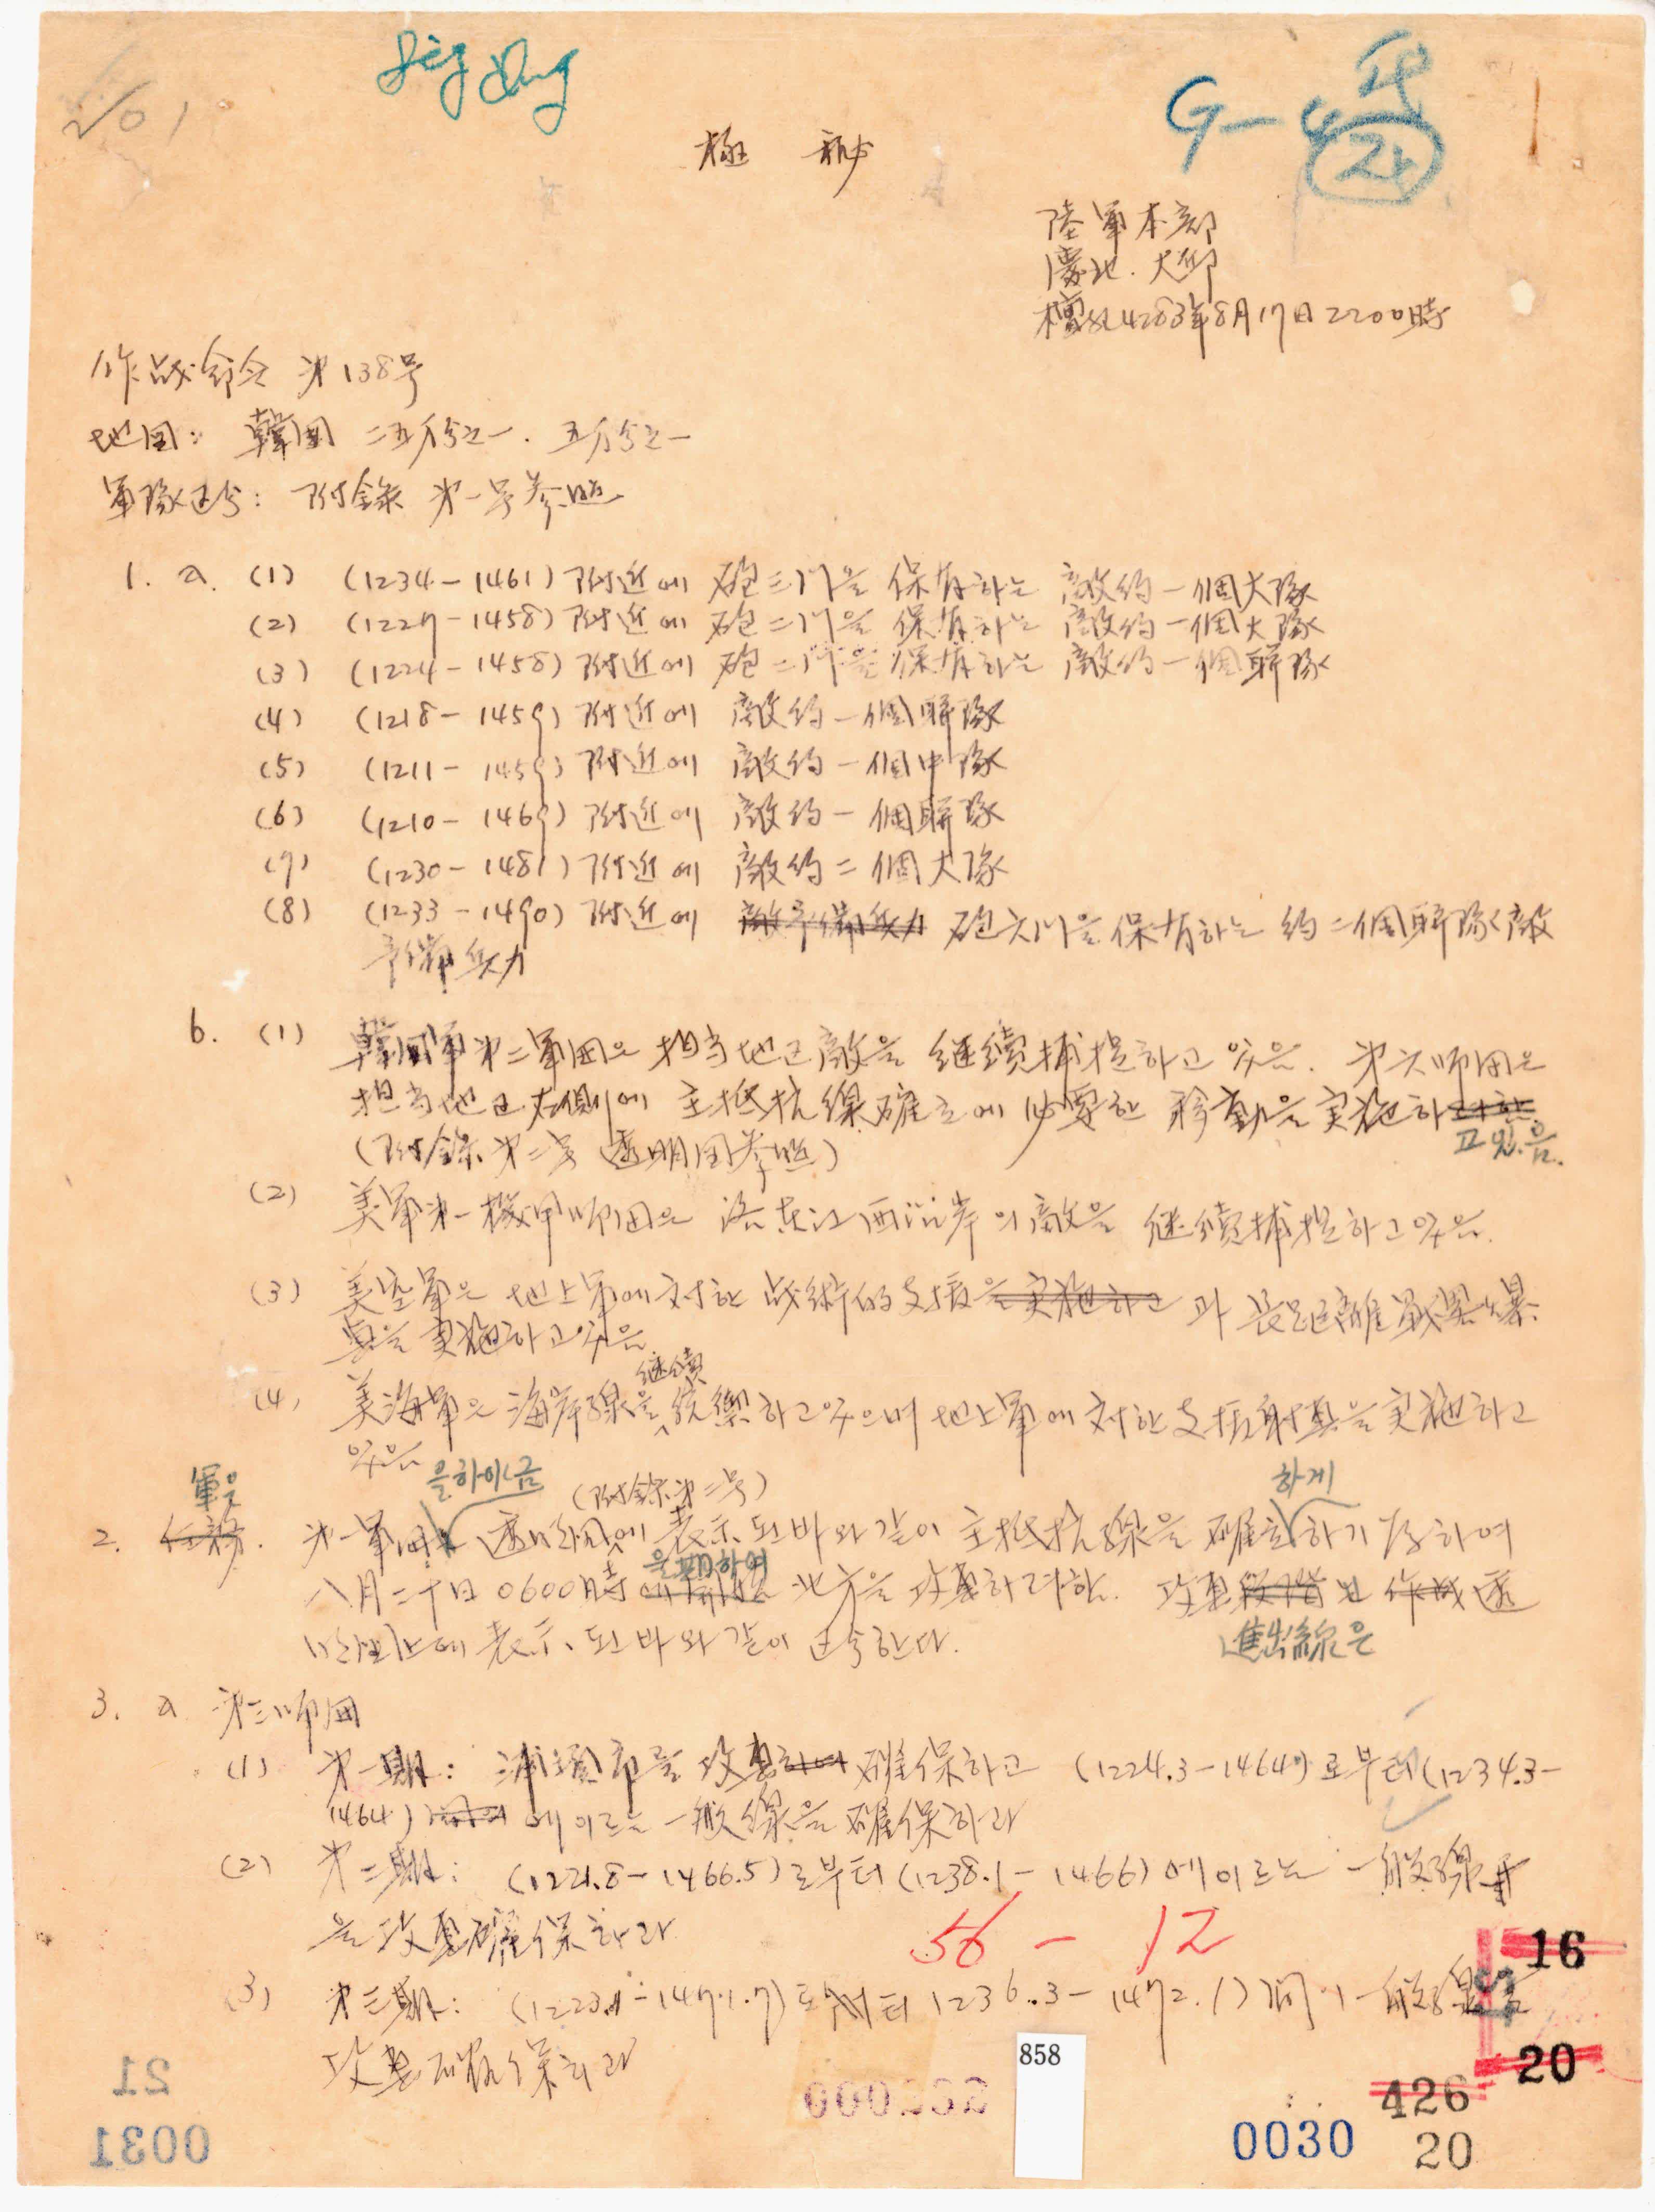 201
G-4
24
極 秘
陸軍本部
慶北. 大邱
檀紀4283年8月17日2200時
作战命令 第138号
地図: 韓国 二五万分之一. 五万分之一
軍隊区分: 附錄 第一号参照
1. a. (1) (1234-1461) 附近에 砲三门을 保有하는 敵約一個大隊
(2) (1227-1458) 附近에 砲二门을 保有하는 敵約一個大隊
(3) (1224-1458) 附近에 砲二门을 保有하는 敵約一個聯隊
(4) (1218-1459) 附近에 敵約一個聯隊
(5) (1211-1459) 附近에 敵約一個中隊
(6) (1210-1469) 附近에 敵約一個聯隊
(7) (1230-1481) 附近에 敵約二個大隊
(8) (1233-1490) 附近에 敵予備兵力 砲六门을 保有하는 約二個聯隊敵
予備兵力
b. (1) 韓国軍第二軍団은 担当地区敵을 継續捕捉하고 있음. 第六师団은
担当地区右側에 主抵抗線確立에 必要한 移動을 実施하고있음.
(附錄 第二号 透明図参照)
(2) 美軍第一機甲师団은 洛东江西沿岸의敵을 継續捕捉하고있음.
(3) 美空軍은 地上軍에 対한 战術的支援을実施하고 과 長距離爆
擊을 実施하고있음
(4) 美海軍은 海岸線을 継續 統禦하고있으며 地上軍에 対한 支援射擊을 実施하고
있음
軍은 을하여금 (附錄第二号) 하게
2. 任務. 第一軍団 透明図에 表示된바와같이 主抵抗線을 確立하기 하여
八月二十日 0600時 을期하여 北方을 攻擊하려함. 攻擊 透
明図上에 表示된바와같이 区分한다.
進出線은
3. a 第三师団
(1) 第一期: 浦項市를 攻擊하여 確保하고 (1224.3-1464)로부터(1234.3-
1464) 에이르는 一般線을 確保하라
(2) 第二期: (1221.8-1466.5)로부터(1238.1-1466)에이르는 一般線
을攻擊確保하라
56-12
(3) 第三期: 로부터 1236.3-1472.1)间의一般線을
攻擊確保하라
16
20
858
426
21
0031
0030
20